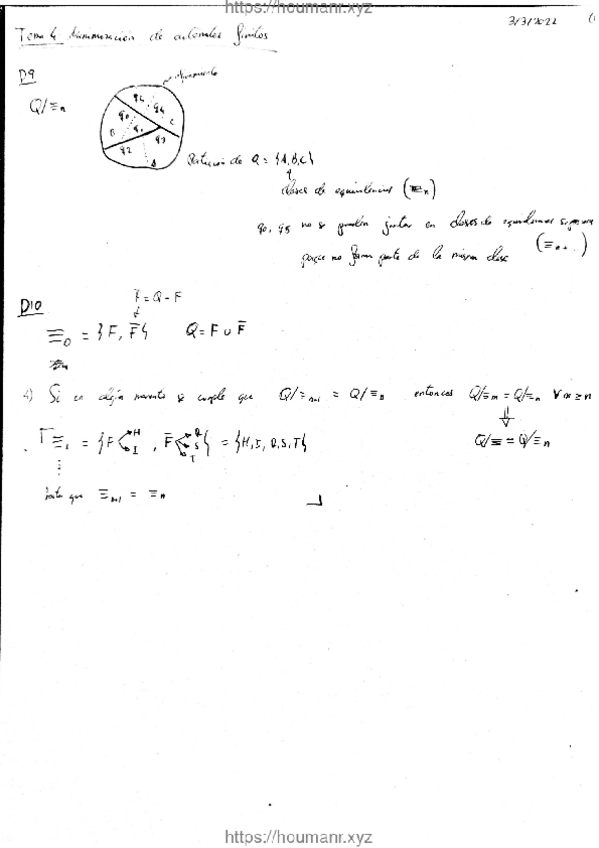 https://houmanr.xyz
3/3/2022
Tema 4 Minimización de autómatas finitos
D9
Q/≡n
q4 q4
q0
B q1 C
q2 q3
A
Partición de Q = {A,B,C}
clases de equivalencias (≡n)
q0, q5 no se pueden juntar en clases de equivalencias
porque no forman parte de la misma clase (≡n+...)
D10
F̄ = Q - F
≡0 = {F, F̄} Q = F ∪ F̄
4) Si en algún momento se cumple que Q/≡n+1 = Q/≡n entonces Q/≡m = Q/≡n ∀m ≥ n
⇓
Q/≡ = Q/≡n
≡1 = {F H I , F̄ R S T} = {H, I, R, S, T}
hasta que ≡n+1 = ≡n
https://houmanr.xyz